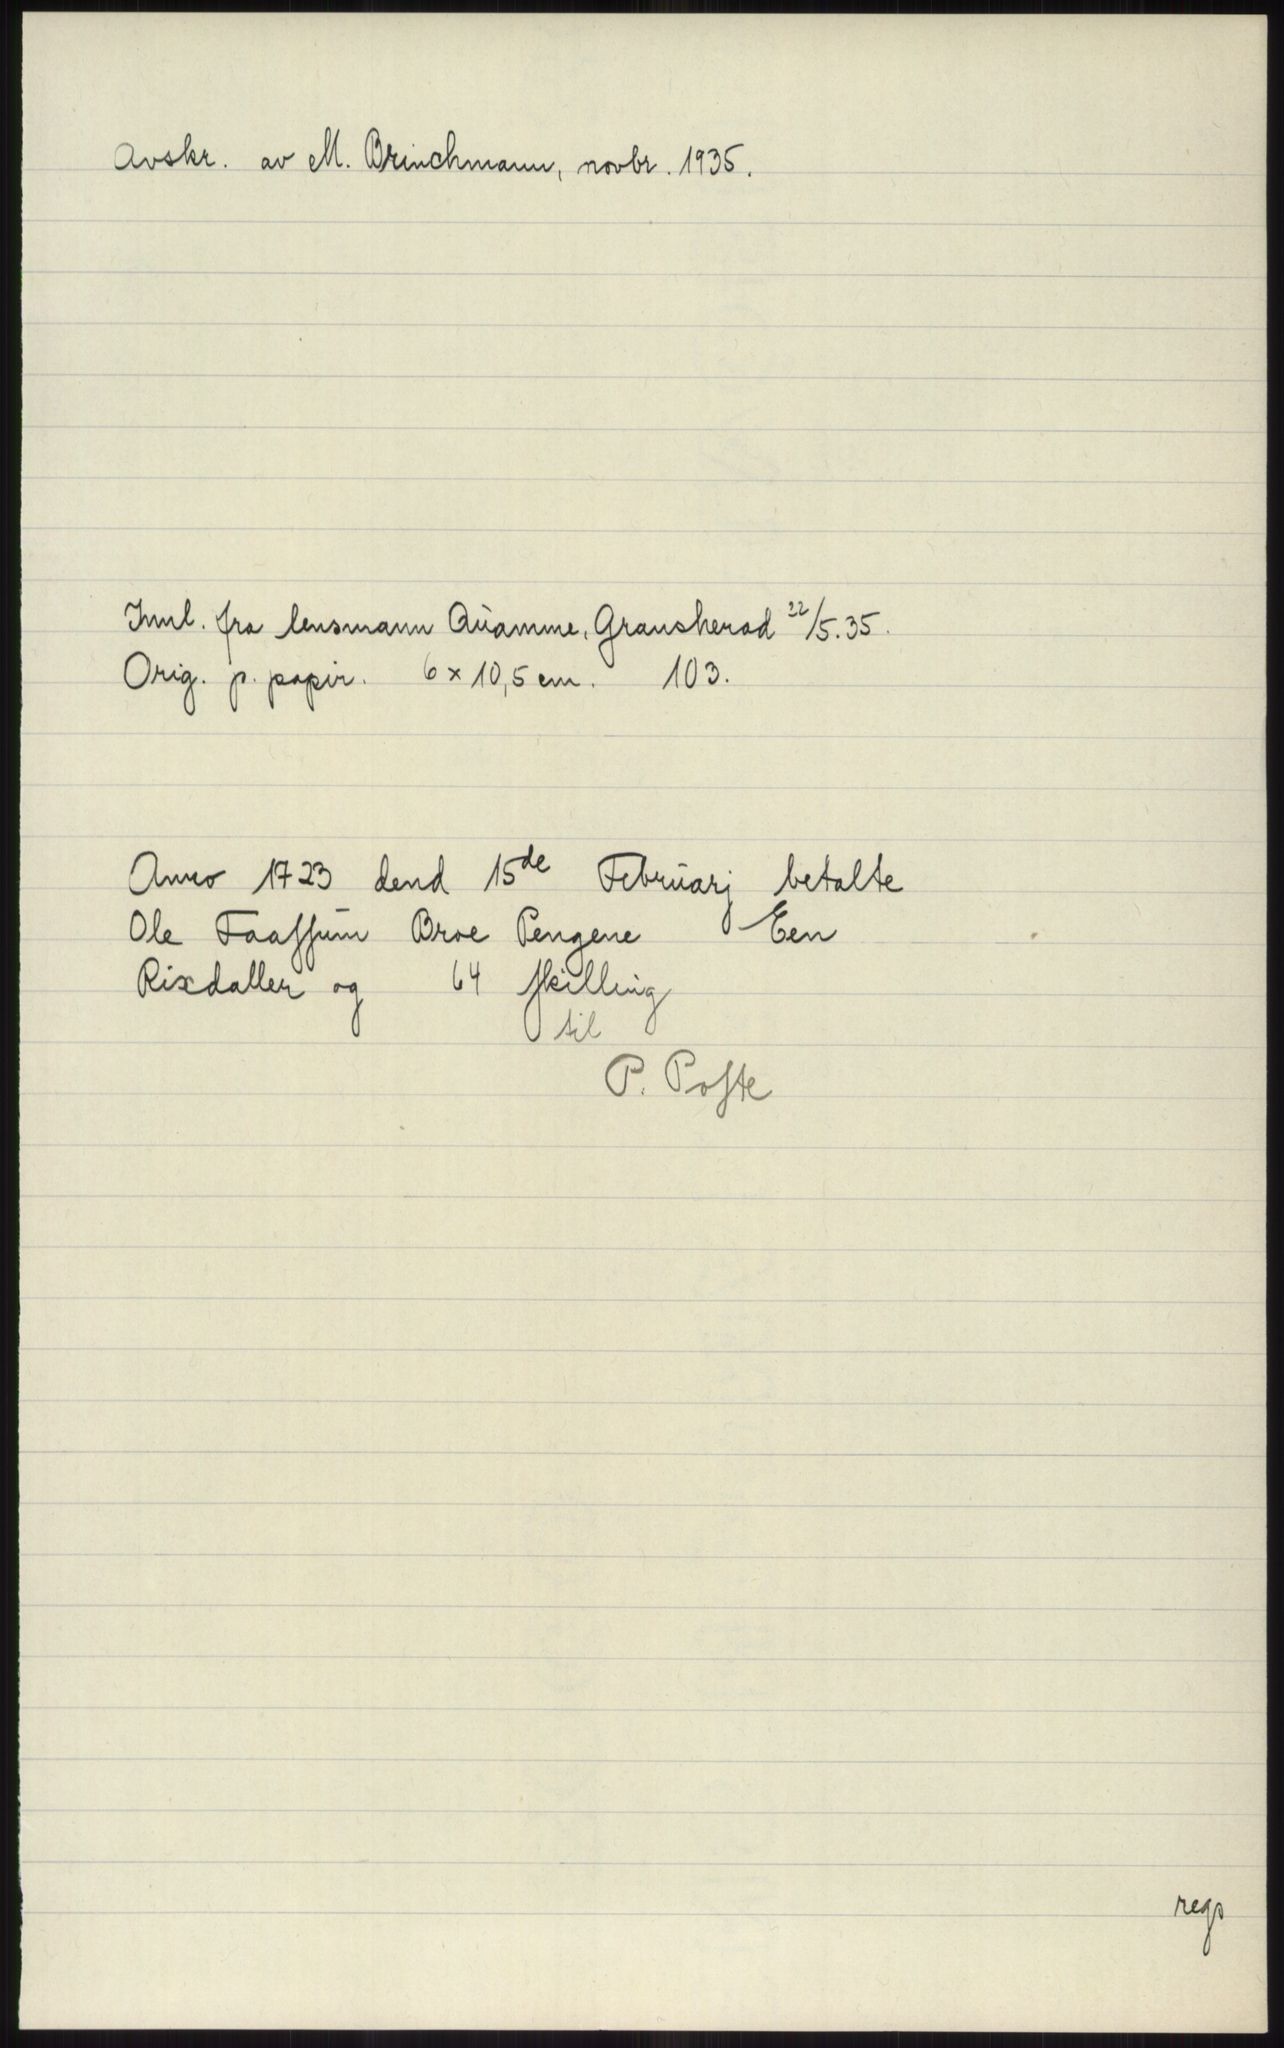 Avskr. av M. Brinchmann, novbr. 1935.
Innl. fra lensmann Quamme, Gransherad 22/5.35.
Orig. p. papir. 6 x 10,5 cm. 103.
Anno 1723 dend 15de Februarj betalte
Ole Faassum Broe Pengene Een
Rixdaller og 64 skilling
til
P. Poste
regs